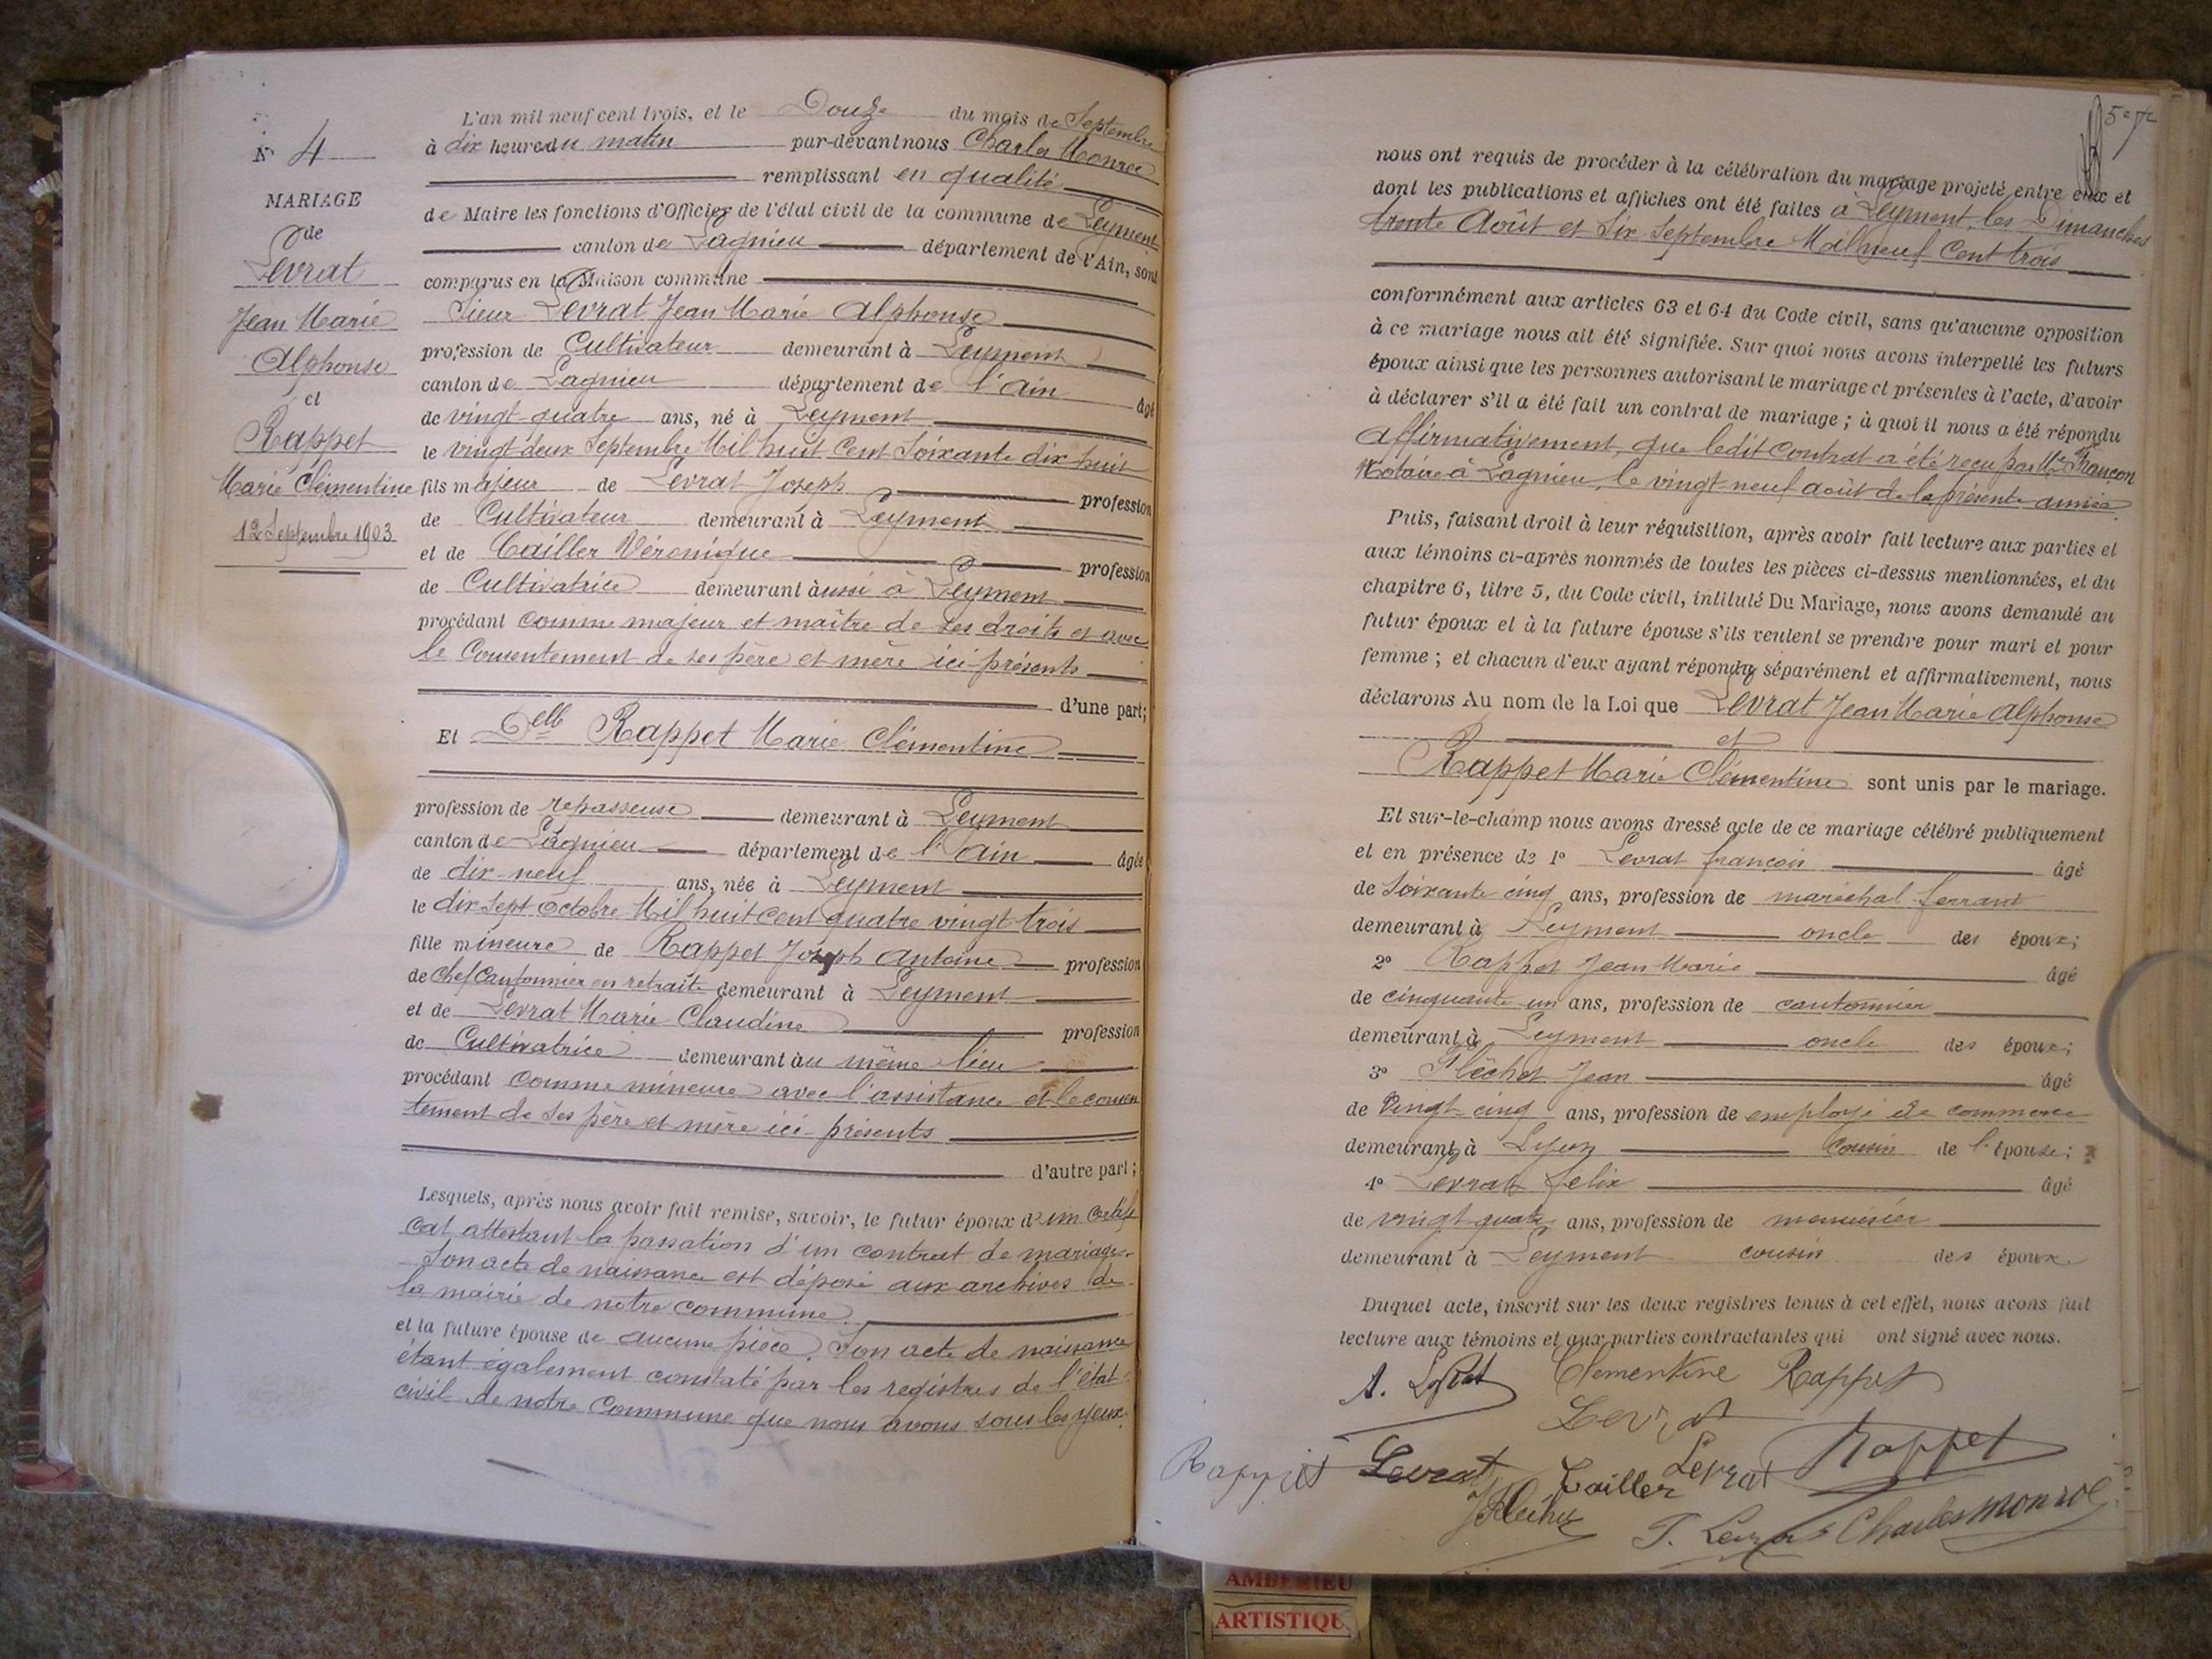 N° 4
MARIAGE
de
Levrat
Jean Marie
Alphonse
et
Rappet
Marie Clémentine
12 Septembre 1903
L'an mil neuf cent trois, et le Douze du mois de Septembre
à dix heures du matin par-devant nous Charles Monroe
remplissant en qualité
de Maire les fonctions d'Officier de l'état civil de la commune de Leyment
canton de Lagnieu département de l'Ain, sont
comparus en la Maison commune
Sieur Levrat Jean Marie Alphonse
profession de Cultivateur demeurant à Leyment
canton de Lagnieu département de l'Ain âgé
de vingt-quatre ans, né à Leyment
le vingt deux Septembre Mil huit Cent Soixante dix huit
fils majeur de Levrat Joseph profession
de Cultivateur demeurant à Leyment
et de Cailler Véronique profession
de Cultivatrice demeurant aussi à Leyment
procédant comme majeur et maître de ses droits et avec
le Consentement de ses père et mère ici présents
d'une part;
Et Delle Rappet Marie Clémentine
profession de repasseuse demeurant à Leyment
canton de Lagnieu département de l'Ain âgée
de dix-neuf ans, née à Leyment
le dix Sept Octobre Mil huit cent quatre vingt trois
fille mineure de Rappet Joseph Antoine profession
de Chef Cantonnier en retraite demeurant à Leyment
et de Levrat Marie Claudine profession
de Cultivatrice demeurant au même lieu
procédant comme mineure avec l'assistance et le consen
tement de ses père et mère ici présents
d'autre part;
Lesquels, après nous avoir fait remise, savoir, le futur époux d'un certifi
cat attestant la passation d'un contrat de mariage.
Son acte de naissance est déposé aux archives de
la mairie de notre commune.
et la future épouse de aucune pièce. Son acte de naissance
étant également constaté par les registres de l'état
civil de notre Commune que nous avons sous les yeux.
nous ont requis de procéder à la célébration du mariage projeté entre eux et
dont les publications et affiches ont été faites à Leyment, les Dimanches
trente Août et Six Septembre Mil neuf Cent trois
conformément aux articles 63 et 64 du Code civil, sans qu'aucune opposition
à ce mariage nous ait été signifiée. Sur quoi nous avons interpellé les futurs
époux ainsi que les personnes autorisant le mariage et présentes à l'acte, d'avoir
à déclarer s'il a été fait un contrat de mariage; à quoi il nous a été répondu
affirmativement, que ledit Contrat a été reçu par Me Françon
Notaire à Lagnieu, le vingt-neuf août de la présente année.
Puis, faisant droit à leur réquisition, après avoir fait lecture aux parties et
aux témoins ci-après nommés de toutes les pièces ci-dessus mentionnées, et du
chapitre 6, titre 5, du Code civil, intitulé Du Mariage, nous avons demandé au
futur époux et à la future épouse s'ils veulent se prendre pour mari et pour
femme; et chacun d'eux ayant répondu séparément et affirmativement, nous
déclarons Au nom de la Loi que Levrat Jean Marie Alphonse
et
Rappet Marie Clémentine sont unis par le mariage.
Et sur-le-champ nous avons dressé acte de ce mariage célébré publiquement
et en présence de 1° Levrat françois âgé
de Soixante cinq ans, profession de maréchal-ferrant
demeurant à Leyment oncle des époux;
2° Rappet Jean Marie âgé
de cinquante un ans, profession de cantonnier
demeurant à Leyment oncle des époux;
3° Fléchet Jean âgé
de Vingt cinq ans, profession de employé de commerce
demeurant à Lyon Cousin de l'épouse;
4° Levrat felix âgé
de vingt-quatre ans, profession de menuisier
demeurant à Leyment cousin des époux.
Duquel acte, inscrit sur les deux registres tenus à cet effet, nous avons fait
lecture aux témoins et aux parties contractantes qui ont signé avec nous.
A. Levrat Clementine Rappet
Levrat
Rappet Levrat Cailler Levrat Rappet
J Fléchet F. Levrat Charles Monroe
AMBERIEU
ARTISTIQU